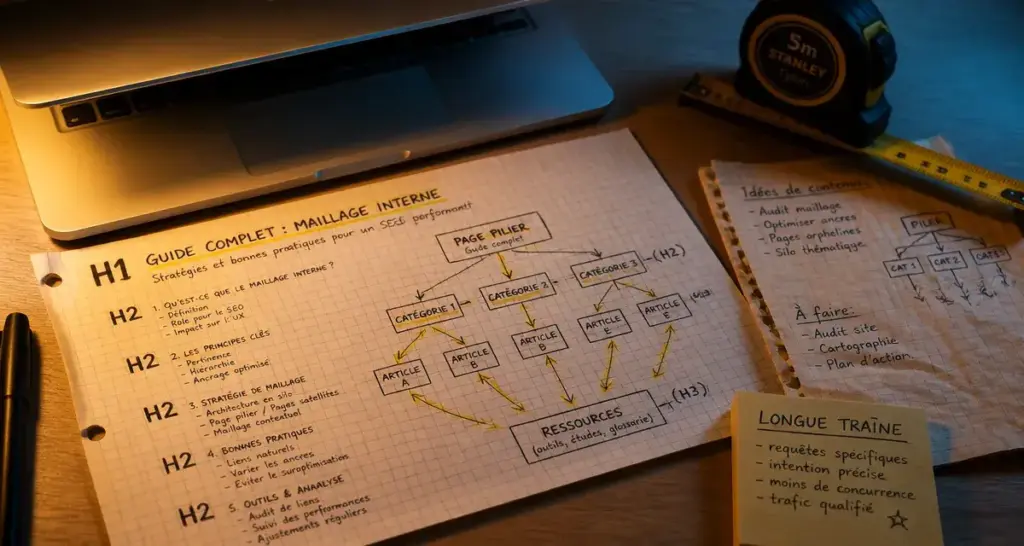 H1 GUIDE COMPLET : MAILLAGE INTERNE
Stratégies et bonnes pratiques pour un performant
H2 1. QU'EST-CE QUE LE MAILLAGE INTERNE ?
- Définition
- Role pour le SEO
- Impact sur l'UX
H2 2. LES PRINCIPES CLÉS
- Pertinence
- Hiérarchie
- Ancrage optimisé
H2 3. STRATÉGIE DE MAILLAGE
- Architecture en silo
- Page pilier / Pages satellites
- Maillage contextuel
H2 4. BONNES PRATIQUES
- Liens naturels
- Varier les ancres
- Eviter le suroptimisation
H2 5. OUTILS & ANAALYSE
- Audit de liens
- Suivi des performances
- Ajustements réguliers
PAGE PILIER
Guide complet
CATÉGORIE 1
CATÉGORIE 2
CATÉGORIE 3 (H2)
ARTICLE A
ARTICLE B
ARTICLE B
ARTICLE E
ARTICLE E
RESSOURCES (H3)
(outils, études, glossarie)
5m
STANLEY
Idées de contenu
- Audit maillage
- Optimiser ancres
- Pages orphelines
- Silo thématique
PILER
CAT 1
CAT 2
CAT 3
À faire:
- Audit site
- Cartographie
- Plan d'action
LONGUE TRAÎNE
- requêtes spécifiques
- intention précise
- moins de concurrence
- trafic qualifié